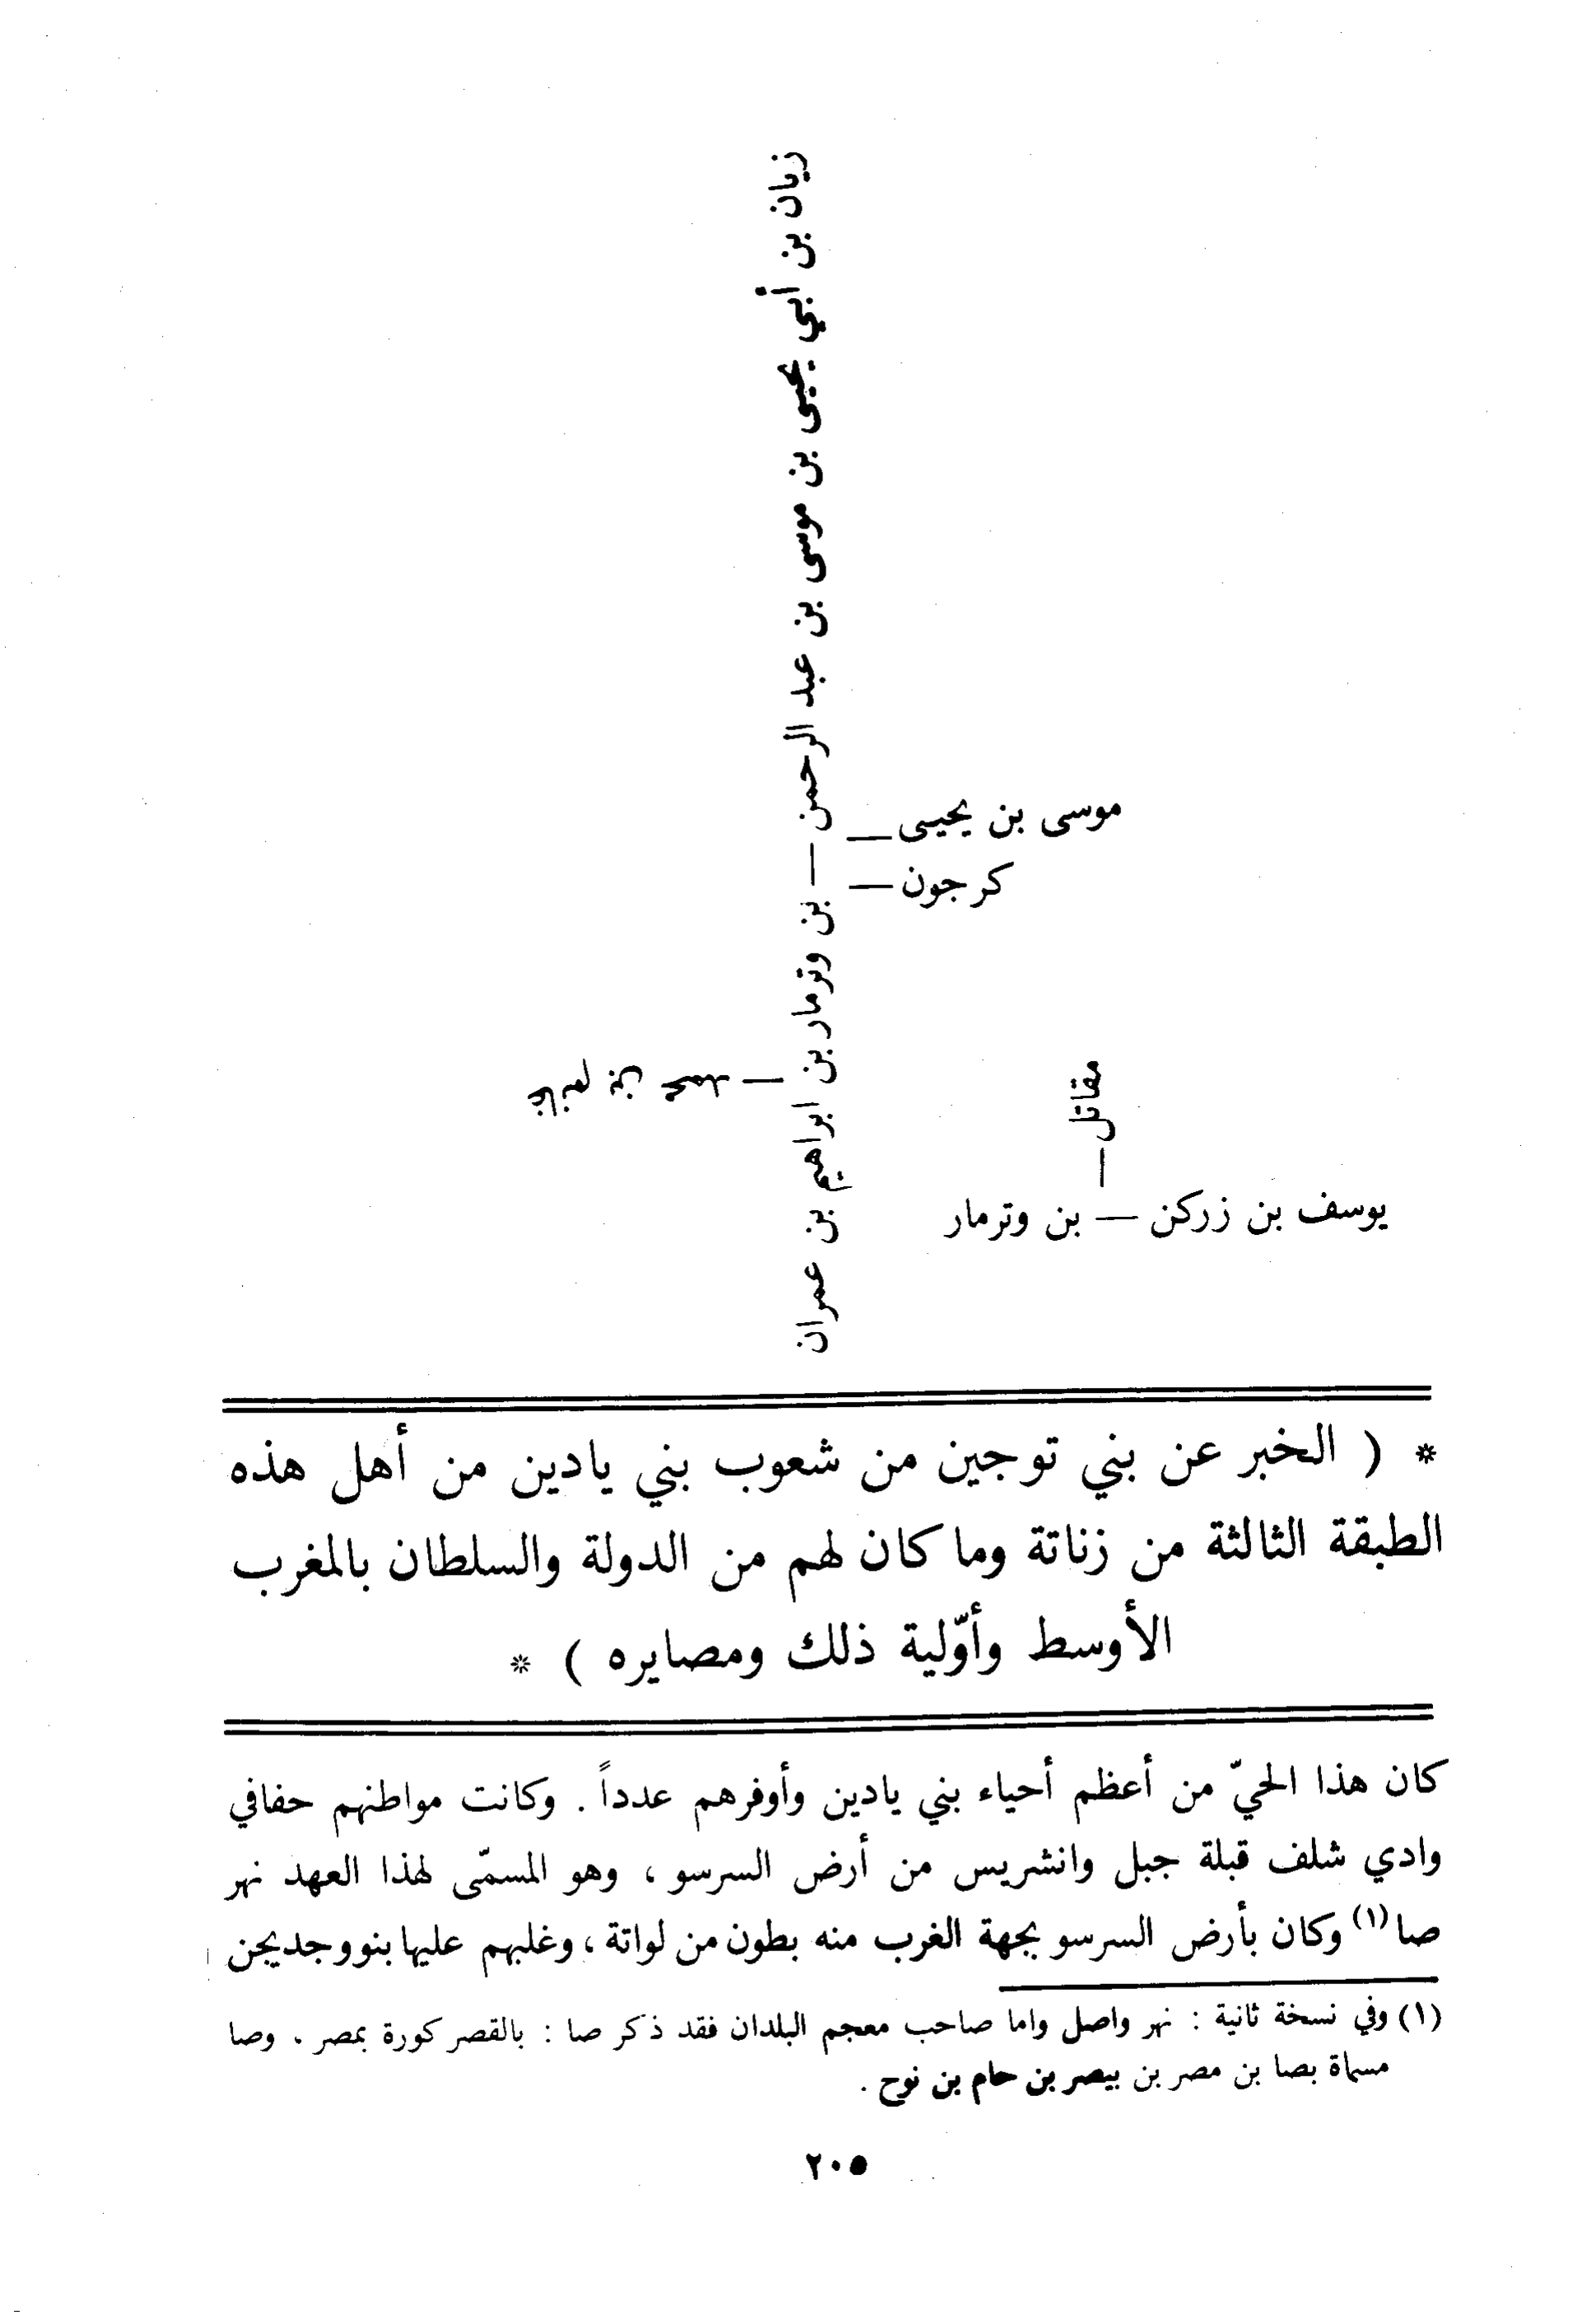 زيان بن أبي يحيى بن موسى بن عبد الرحمن — بن وترمار بن ابراهيم بن عمران
موسى بن يحيى —
كرجون —
بن محمد —
مقاتل —
يوسف بن زركن — بن وترمار
* ( الخبر عن بني توجين من شعوب بني يادين من أهل هذه
الطبقة الثالثة من زناتة وما كان لهم من الدولة والسلطان بالمغرب
الأوسط وأوّلية ذلك ومصايره ) *
كان هذا الحيّ من أعظم أحياء بني يادين وأوفرهم عدداً . وكانت مواطنهم حفافي
وادي شلف قبلة جبل وانشريس من أرض السرسو ، وهو المسمّى لهذا العهد نهر
صا (١) وكان بأرض السرسو بجهة الغرب منه بطون من لواتة ، وغلبهم عليها بنو وجديجن
(١) وفي نسخة ثانية : نهر واصل واما صاحب معجم البلدان فقد ذكر صا : بالقصر كورة بمصر . وصا
مسماة بصا بن مصر بن بيصر بن حام بن نوح .
٢٠٥